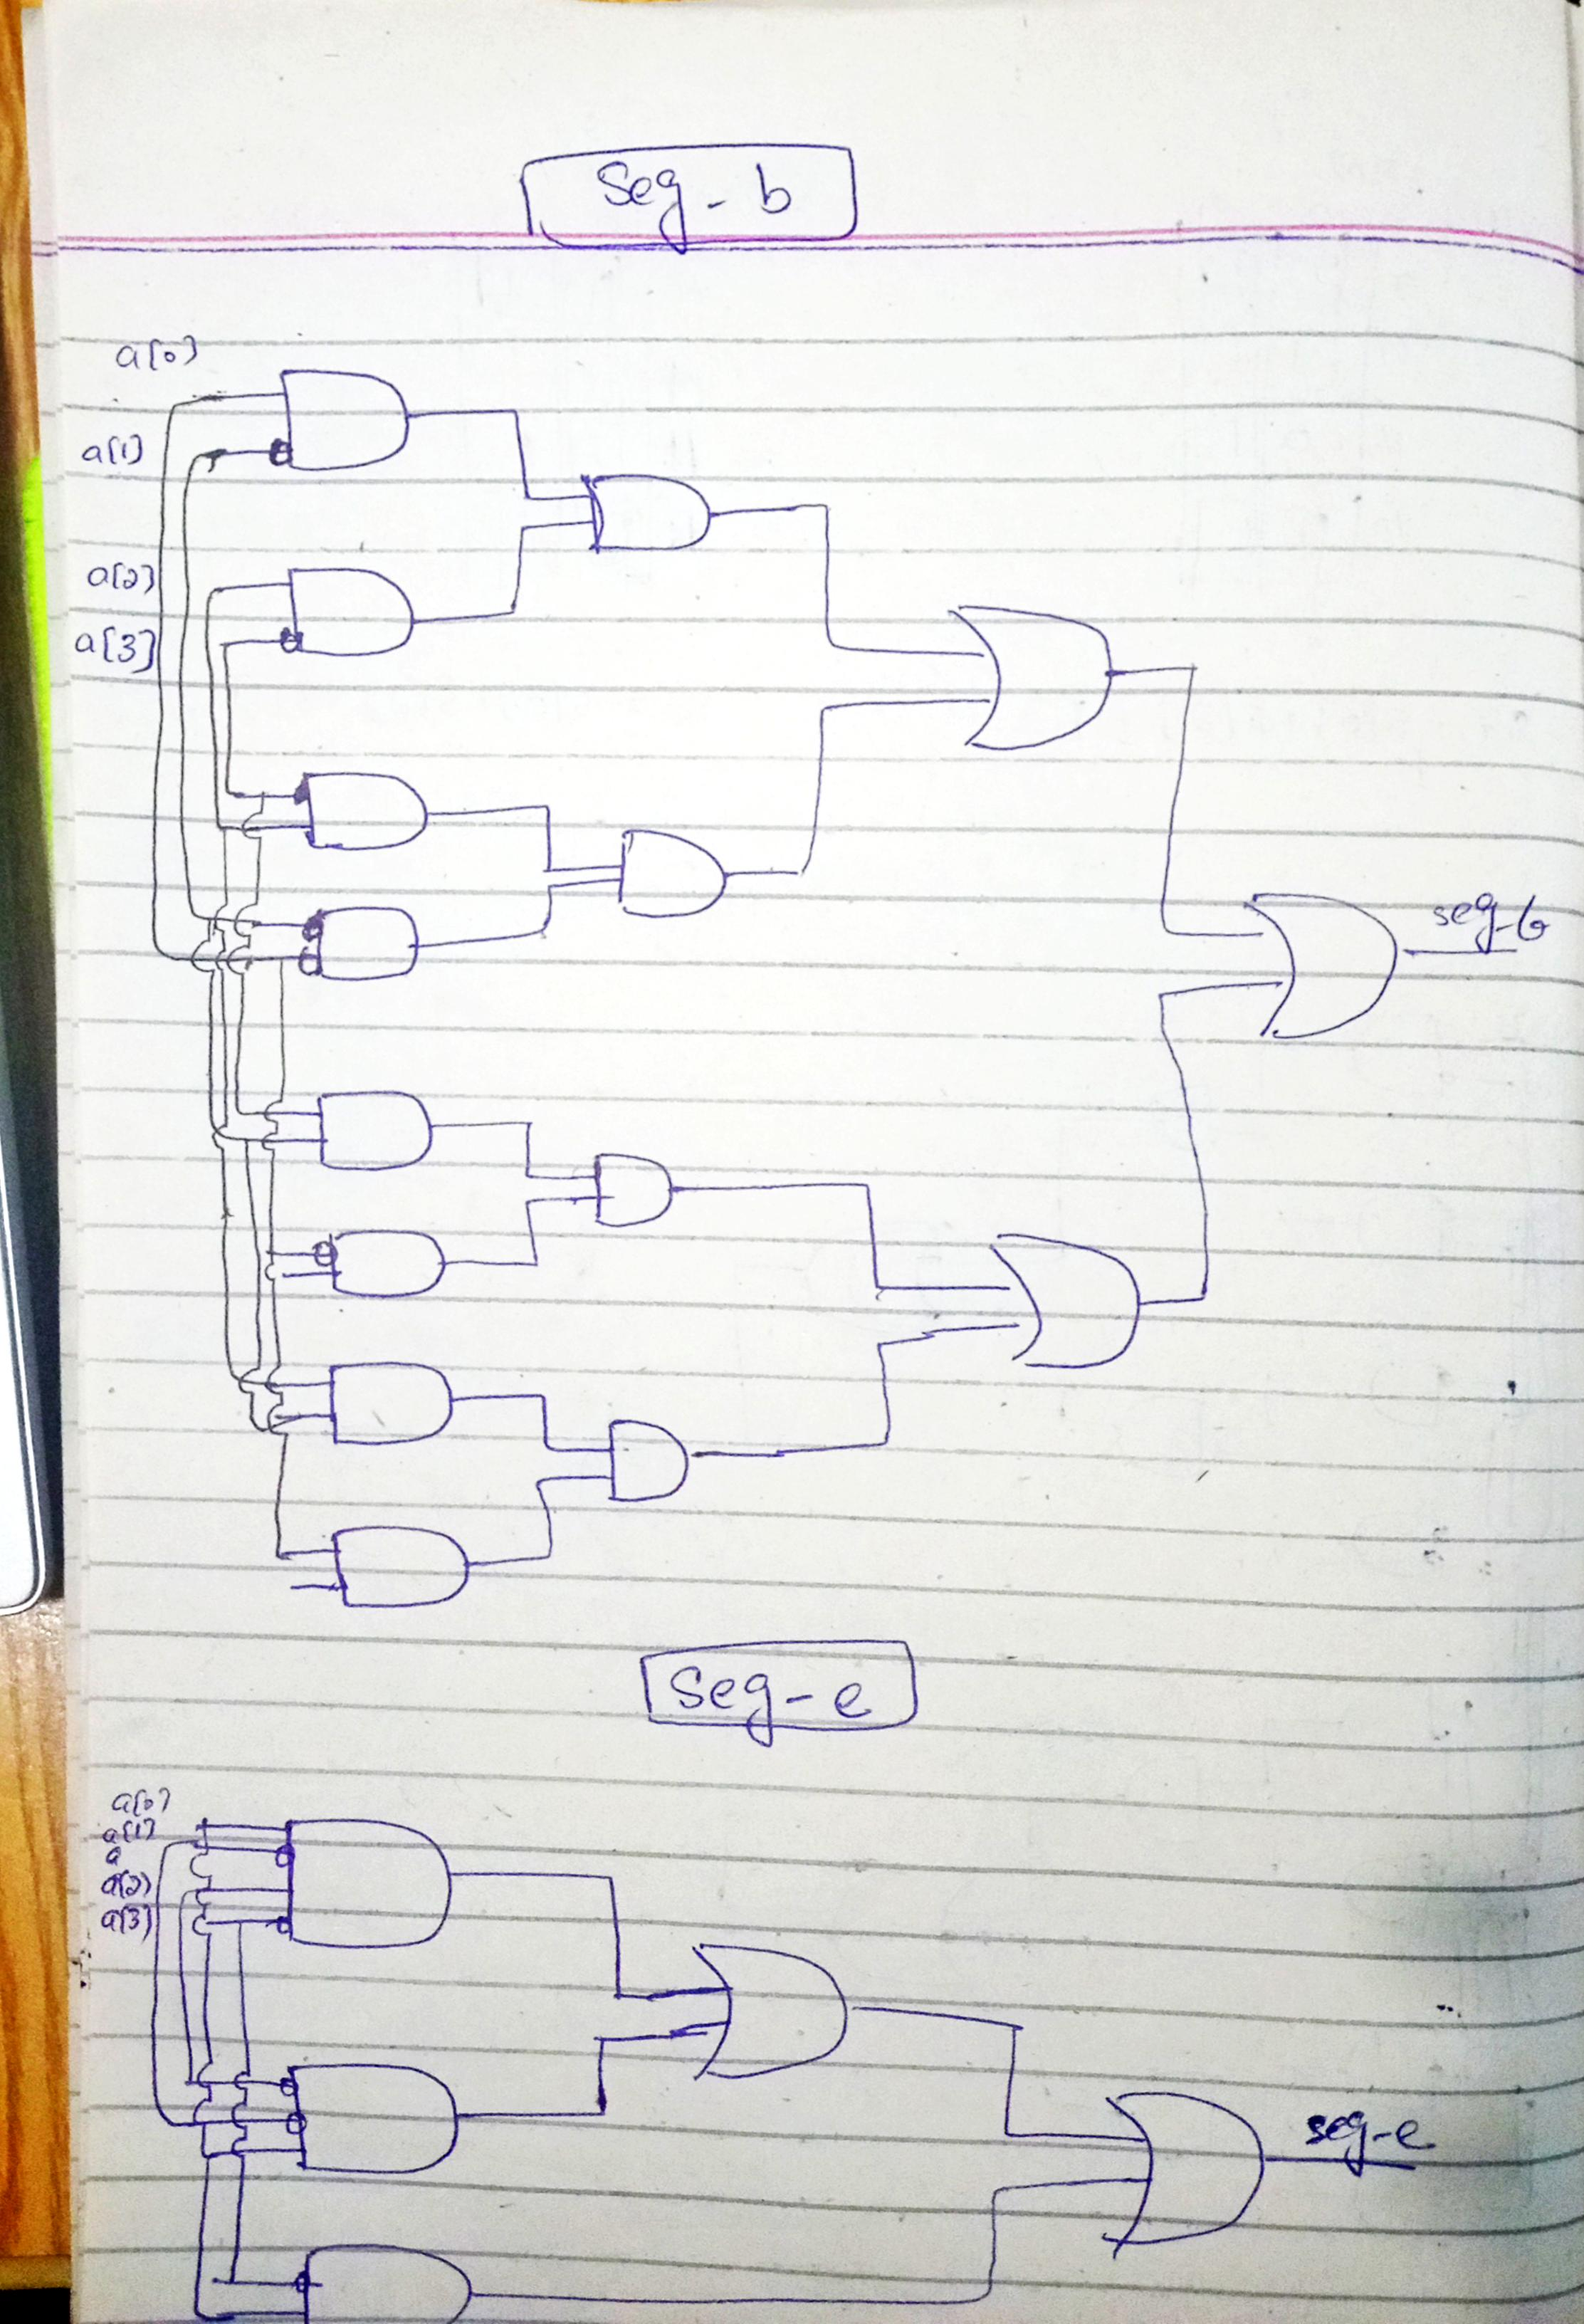 Seg-b
a[0]
a[1]
a[2]
a[3]
seg-b
Seg-e
a[0]
a[1]
a
a[2]
a[3]
seg-e